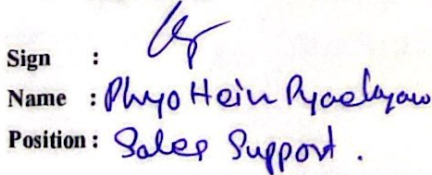 Sign :
Name : Phyo Hein
Position : Sales Support .